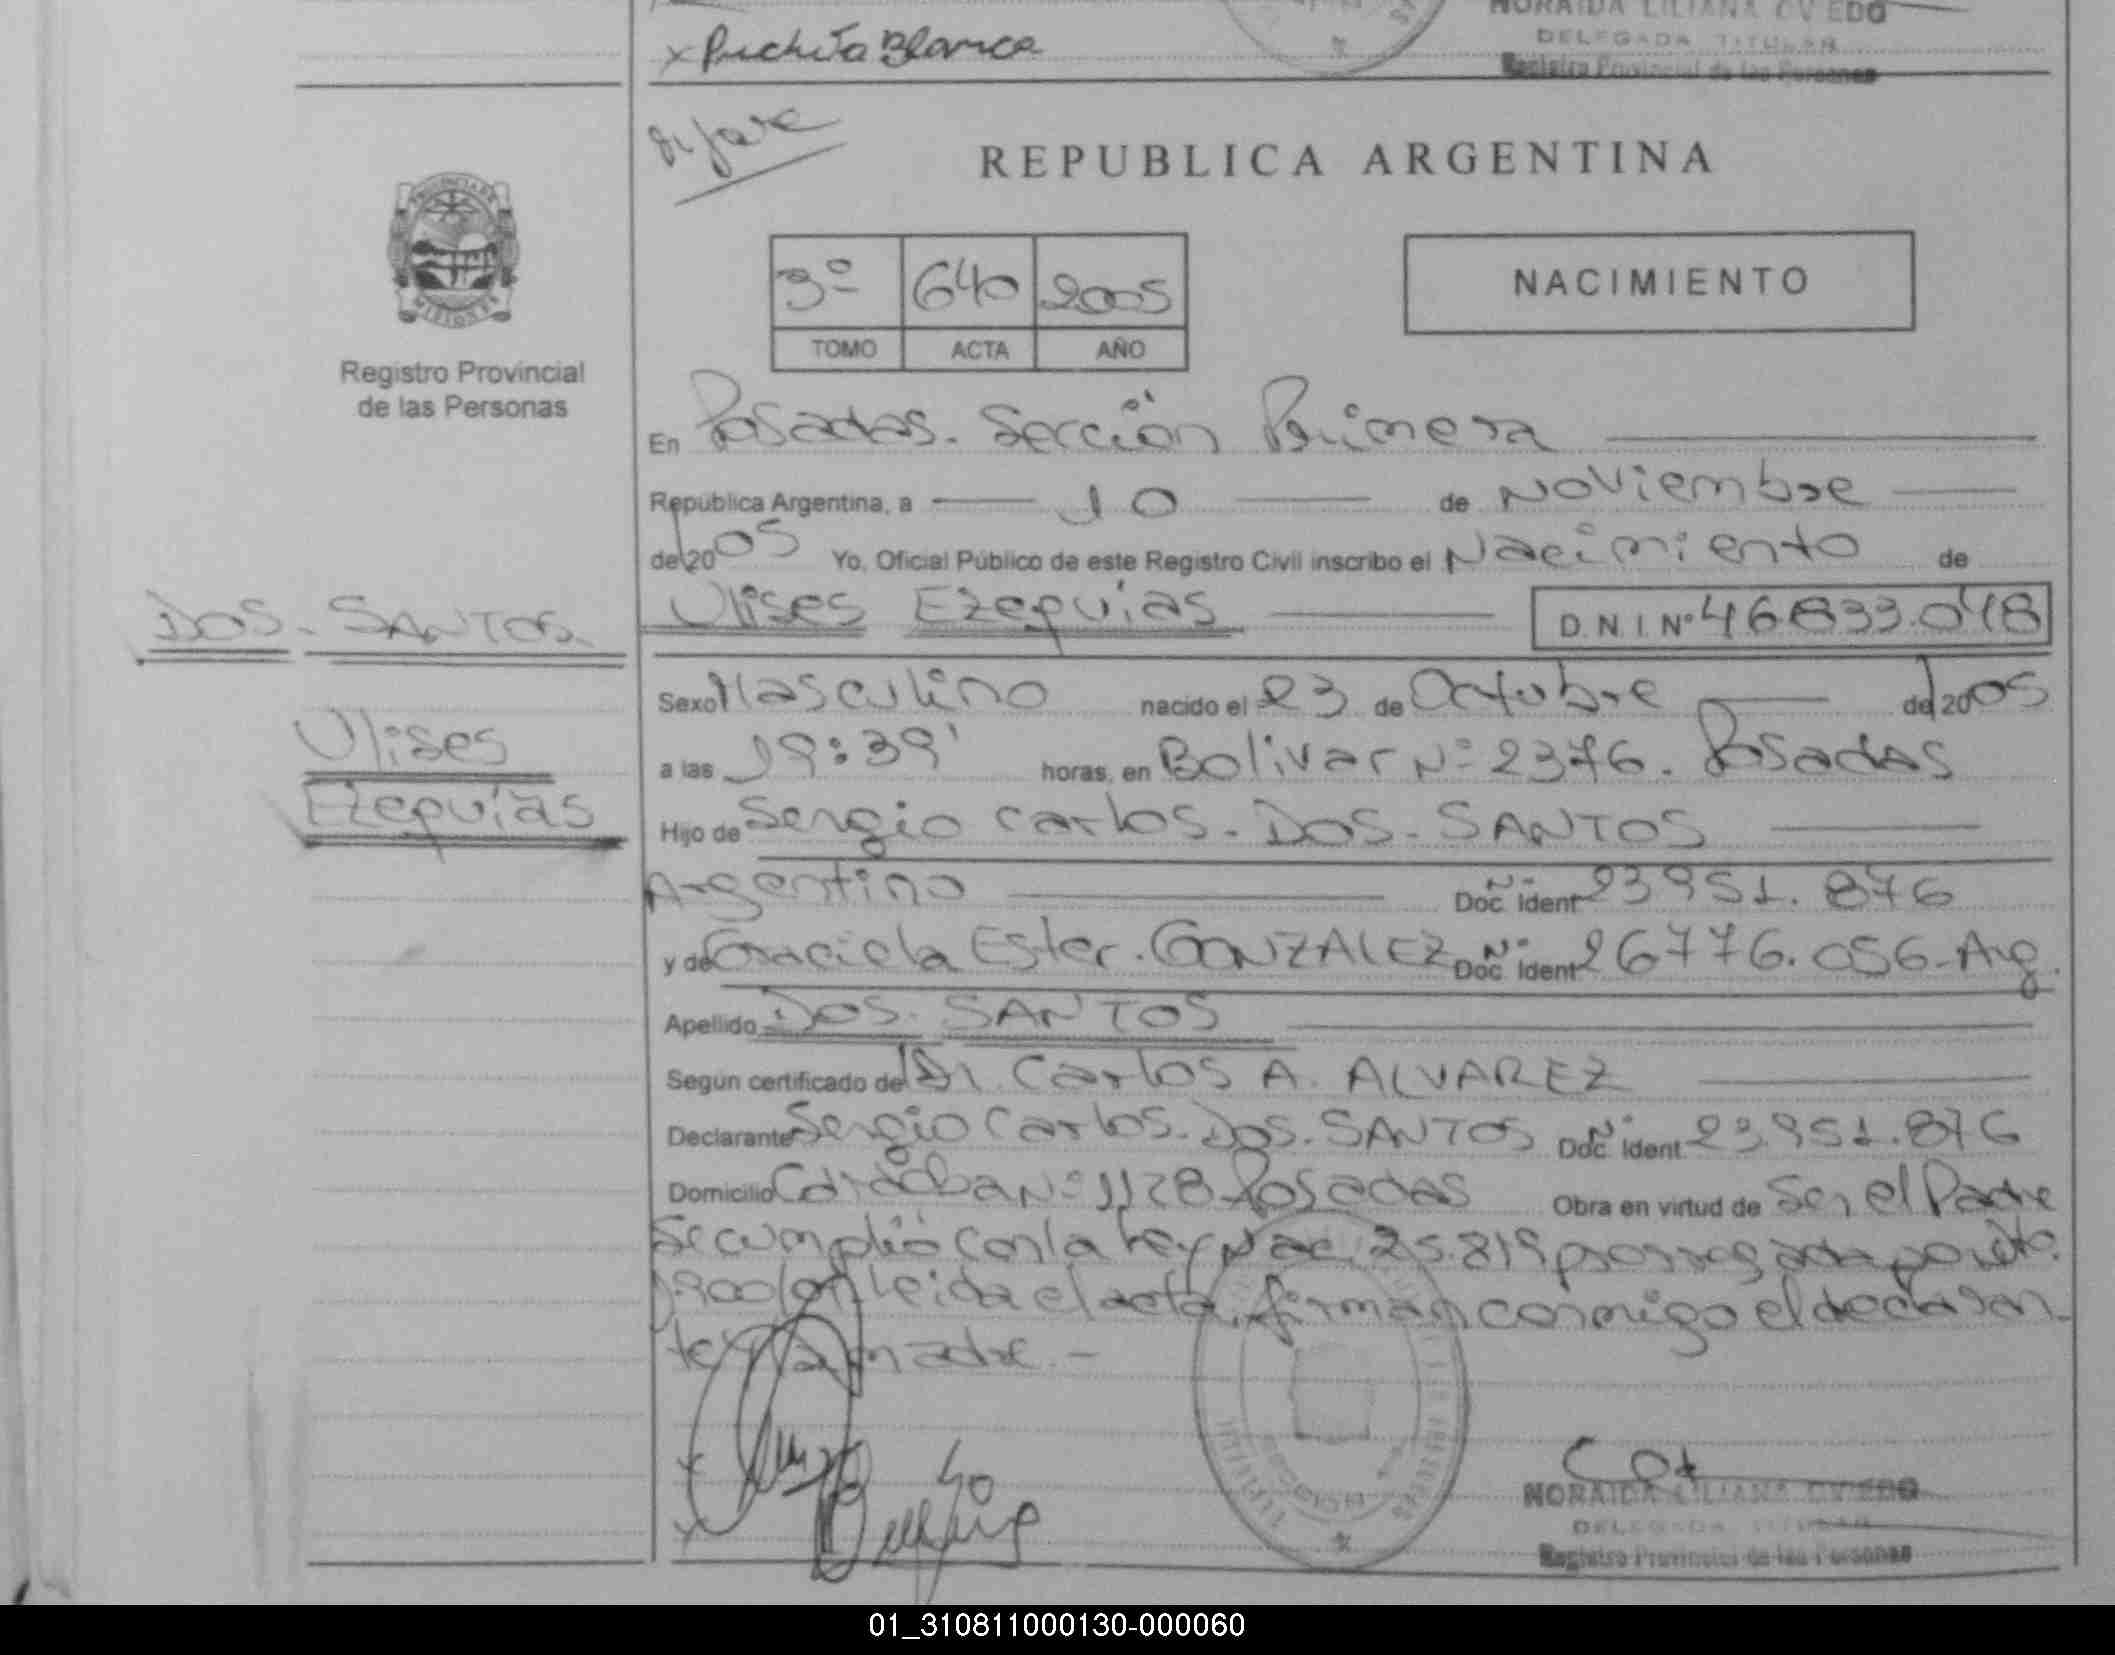 NORAIDA LILIANA OVIEDO
DELEGADA TITULAR
Registro Provincial de las Personas
x Blanca
REPUBLICA ARGENTINA
3º 640 2005
TOMO ACTA AÑO
NACIMIENTO
PROVINCIA DE
MISIONES
Registro Provincial
de las Personas
En Posadas. Sección Primera
República Argentina, a 10 de Noviembre
del 2005 Yo, Oficial Público de este Registro Civil inscribo el Nacimiento de
DOS. SANTOS.
Ulises Ezequías
D.N.I. Nº 46.833.048
Ulises
Ezequías
Sexo Masculino nacido el 23 de Octubre del 2005
a las 19:39' horas, en Bolivar Nº 2376. Posadas
Hijo de Sergio Carlos. DOS. SANTOS
Argentino Nº Doc. Ident 23951.876
y de Graciela Ester. GONZALEZ Nº Doc. Ident 26776.056-Arg.
Apellido DOS. SANTOS
Según certificado del Dr. Carlos A. ALVAREZ
Declarante Sergio Carlos. DOS. SANTOS Nº Doc. Ident. 23.951.876
Domicilio Córdoba Nº 1128 Posadas Obra en virtud de Ser el Padre
Se cumplió con la Ley Nac. 25.819 prorrogada por dto.
Leida el acta, firman conmigo el declaran-
te y la madre.-
NORAIDA LILIANA OVIEDO
DELEGADA TITULAR
Registro Provincial de las Personas
01_310811000130-000060